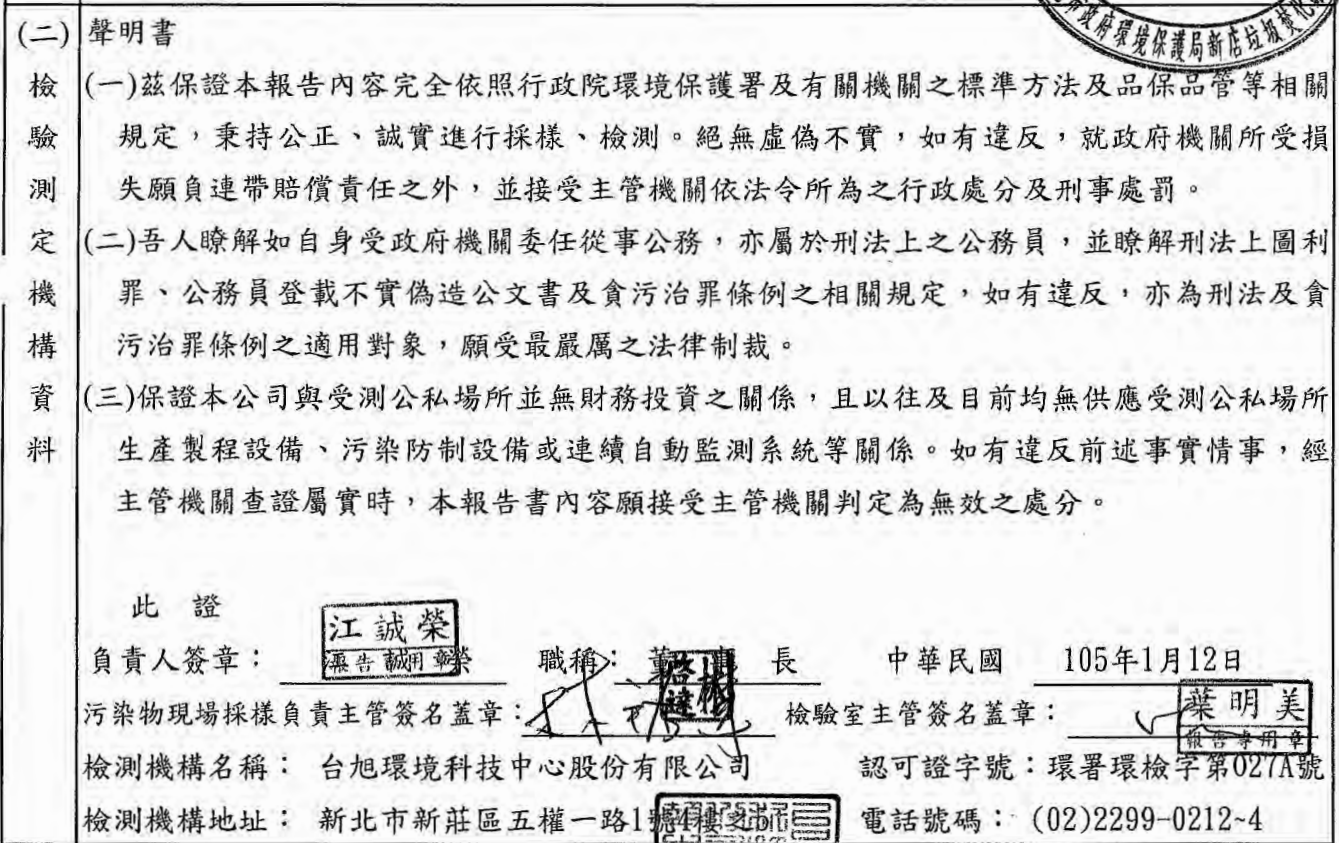 市政府環境保護局新店垃圾焚化
(二) 聲明書
檢驗測定機構資料
(一)茲保證本報告內容完全依照行政院環境保護署及有關機關之標準方法及品保品管等相關
規定，秉持公正、誠實進行採樣、檢測。絕無虛偽不實，如有違反，就政府機關所受損
失願負連帶賠償責任之外，並接受主管機關依法令所為之行政處分及刑事處罰。
(二)吾人瞭解如自身受政府機關委任從事公務，亦屬於刑法上之公務員，並瞭解刑法上圖利
罪、公務員登載不實偽造公文書及貪污治罪條例之相關規定，如有違反，亦為刑法及貪
污治罪條例之適用對象，願受最嚴厲之法律制裁。
(三)保證本公司與受測公私場所並無財務投資之關係，且以往及目前均無供應受測公私場所
生產製程設備、污染防制設備或連續自動監測系統等關係。如有違反前述事實情事，經
主管機關查證屬實時，本報告書內容願接受主管機關判定為無效之處分。
此 證
江誠榮
負責人簽章： 榮 職稱： 董 事 長 中華民國 105年1月12日
污染物現場採樣負責主管簽名蓋章： 啓達 檢驗室主管簽名蓋章： 葉明美
報告專用章
檢測機構名稱： 台旭環境科技中心股份有限公司 認可證字號：環署環檢字第027A號
檢測機構地址： 新北市新莊區五權一路1號4樓之5 電話號碼： (02)2299-0212~4